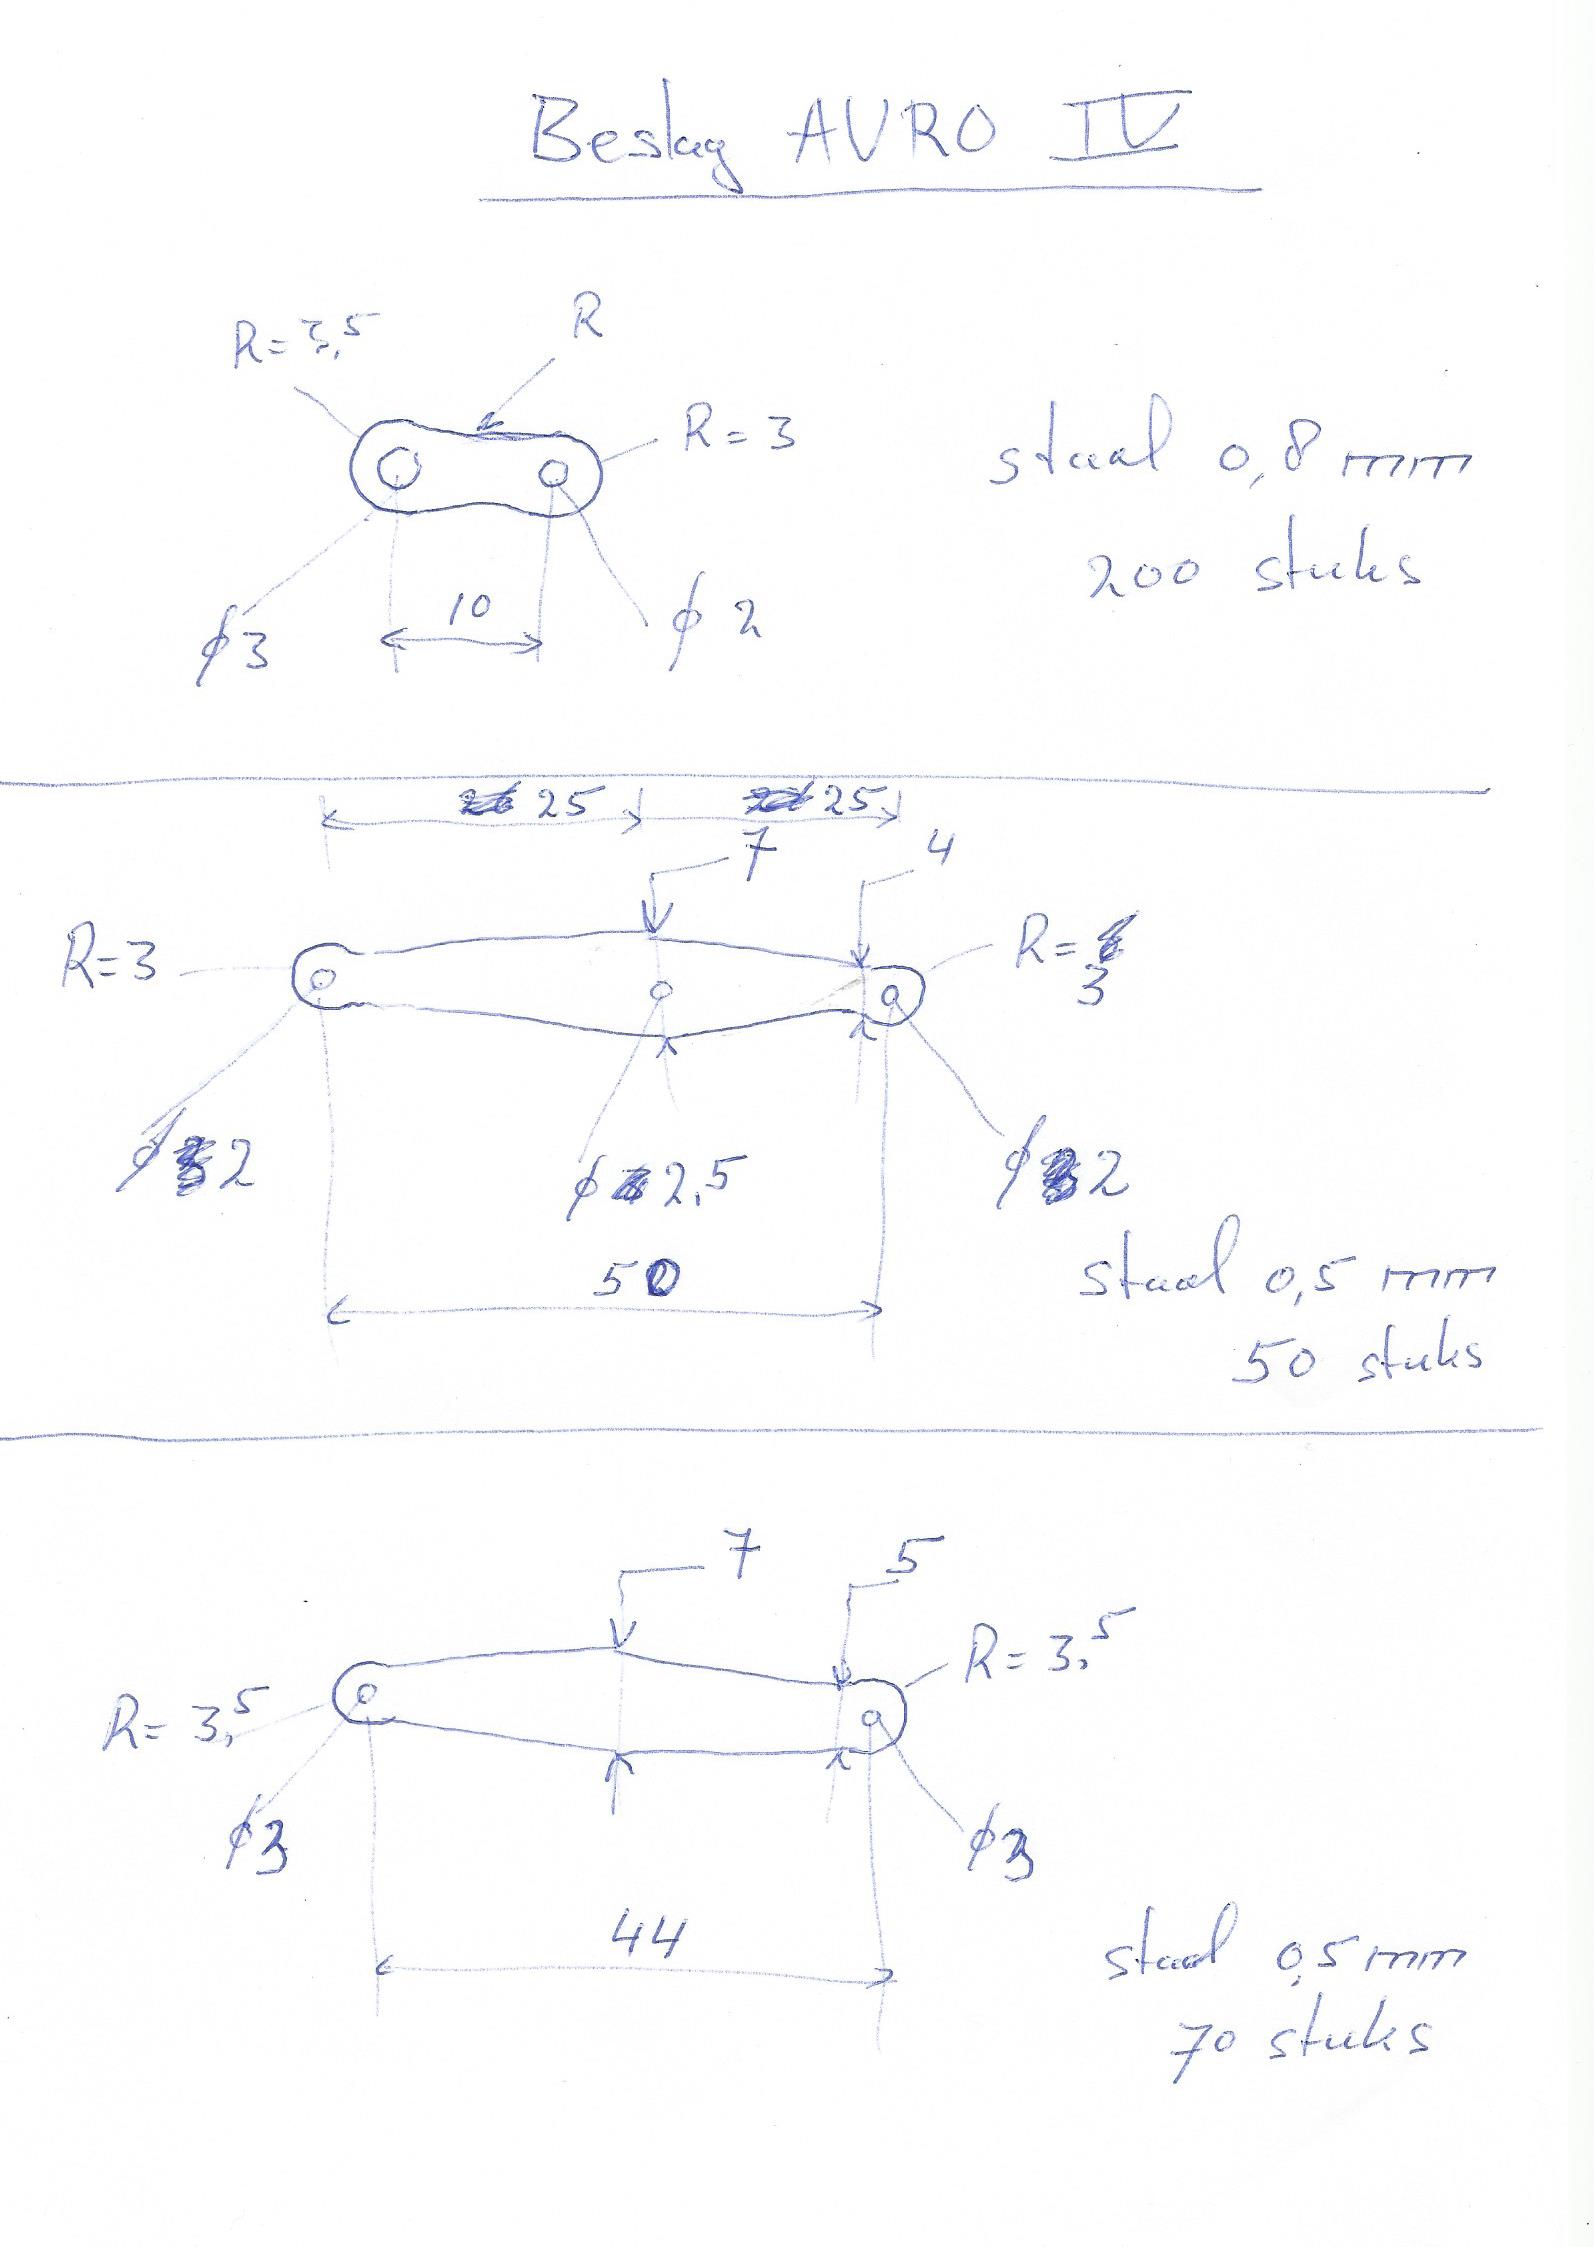 Beslag AVRO IV
R=3,5
R
R=3
staal 0,8 mm
200 stuks
10
ø3
ø2
25
25
7
4
R=3
R=
3
ø2
ø2,5
ø2
50
staal 0,5 mm
50 stuks
7
5
R=3,5
R=3,5
ø3
ø3
44
staal 0,5 mm
70 stuks